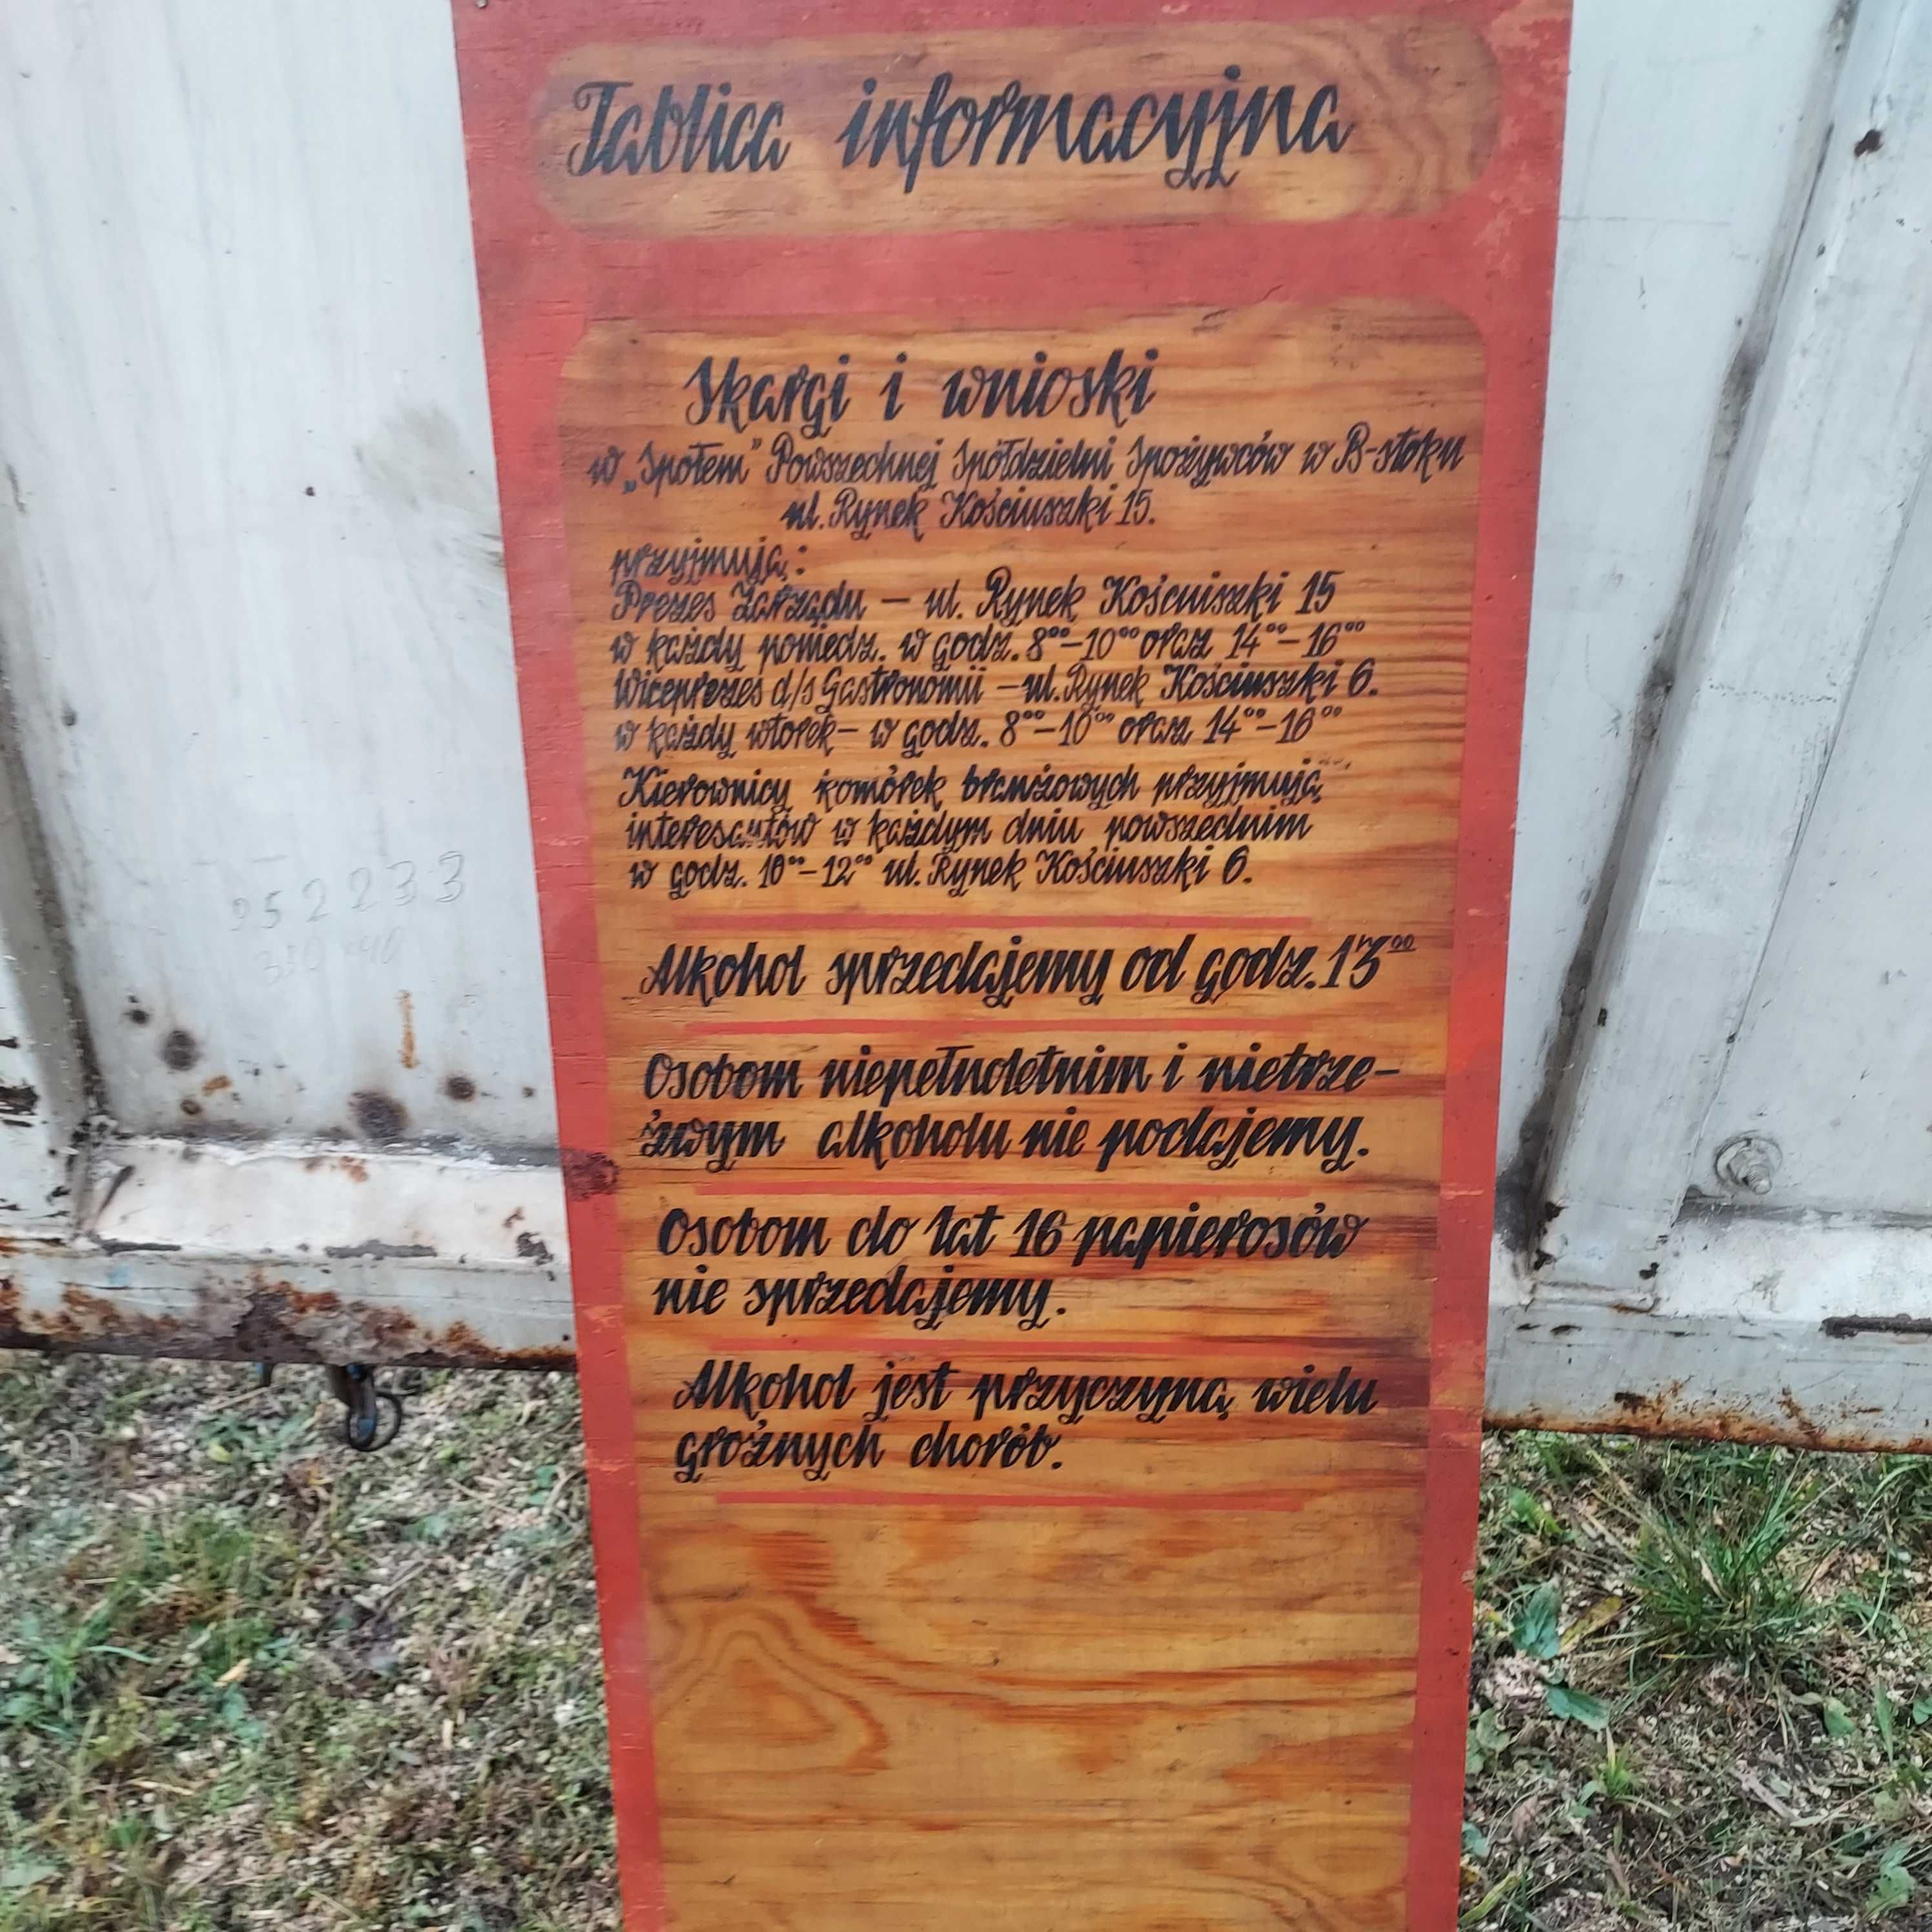 Tablica informacyjna
Skargi i wnioski
w „Społem" Powszechnej Spółdzielni Spożywców w B-stoku
ul. Rynek Kościuszki 15.
przyjmują:
Prezes Zarządu – ul. Rynek Kościuszki 15
w każdy poniedz. w godz. 8⁰⁰–10⁰⁰ oraz 14⁰⁰–16⁰⁰
Wiceprezes d/s Gastronomii – ul. Rynek Kościuszki 6.
w każdy wtorek – w godz. 8⁰⁰–10⁰⁰ oraz 14⁰⁰–16⁰⁰
Kierownicy komórek branżowych przyjmują
interesantów w każdym dniu powszednim
w godz. 10⁰⁰–12⁰⁰ ul. Rynek Kościuszki 6.
Alkohol sprzedajemy od godz. 13⁰⁰
Osobom niepełnoletnim i nietrze-
źwym alkoholu nie podajemy.
Osobom do lat 16 papierosów
nie sprzedajemy.
Alkohol jest przyczyną wielu
groźnych chorób.